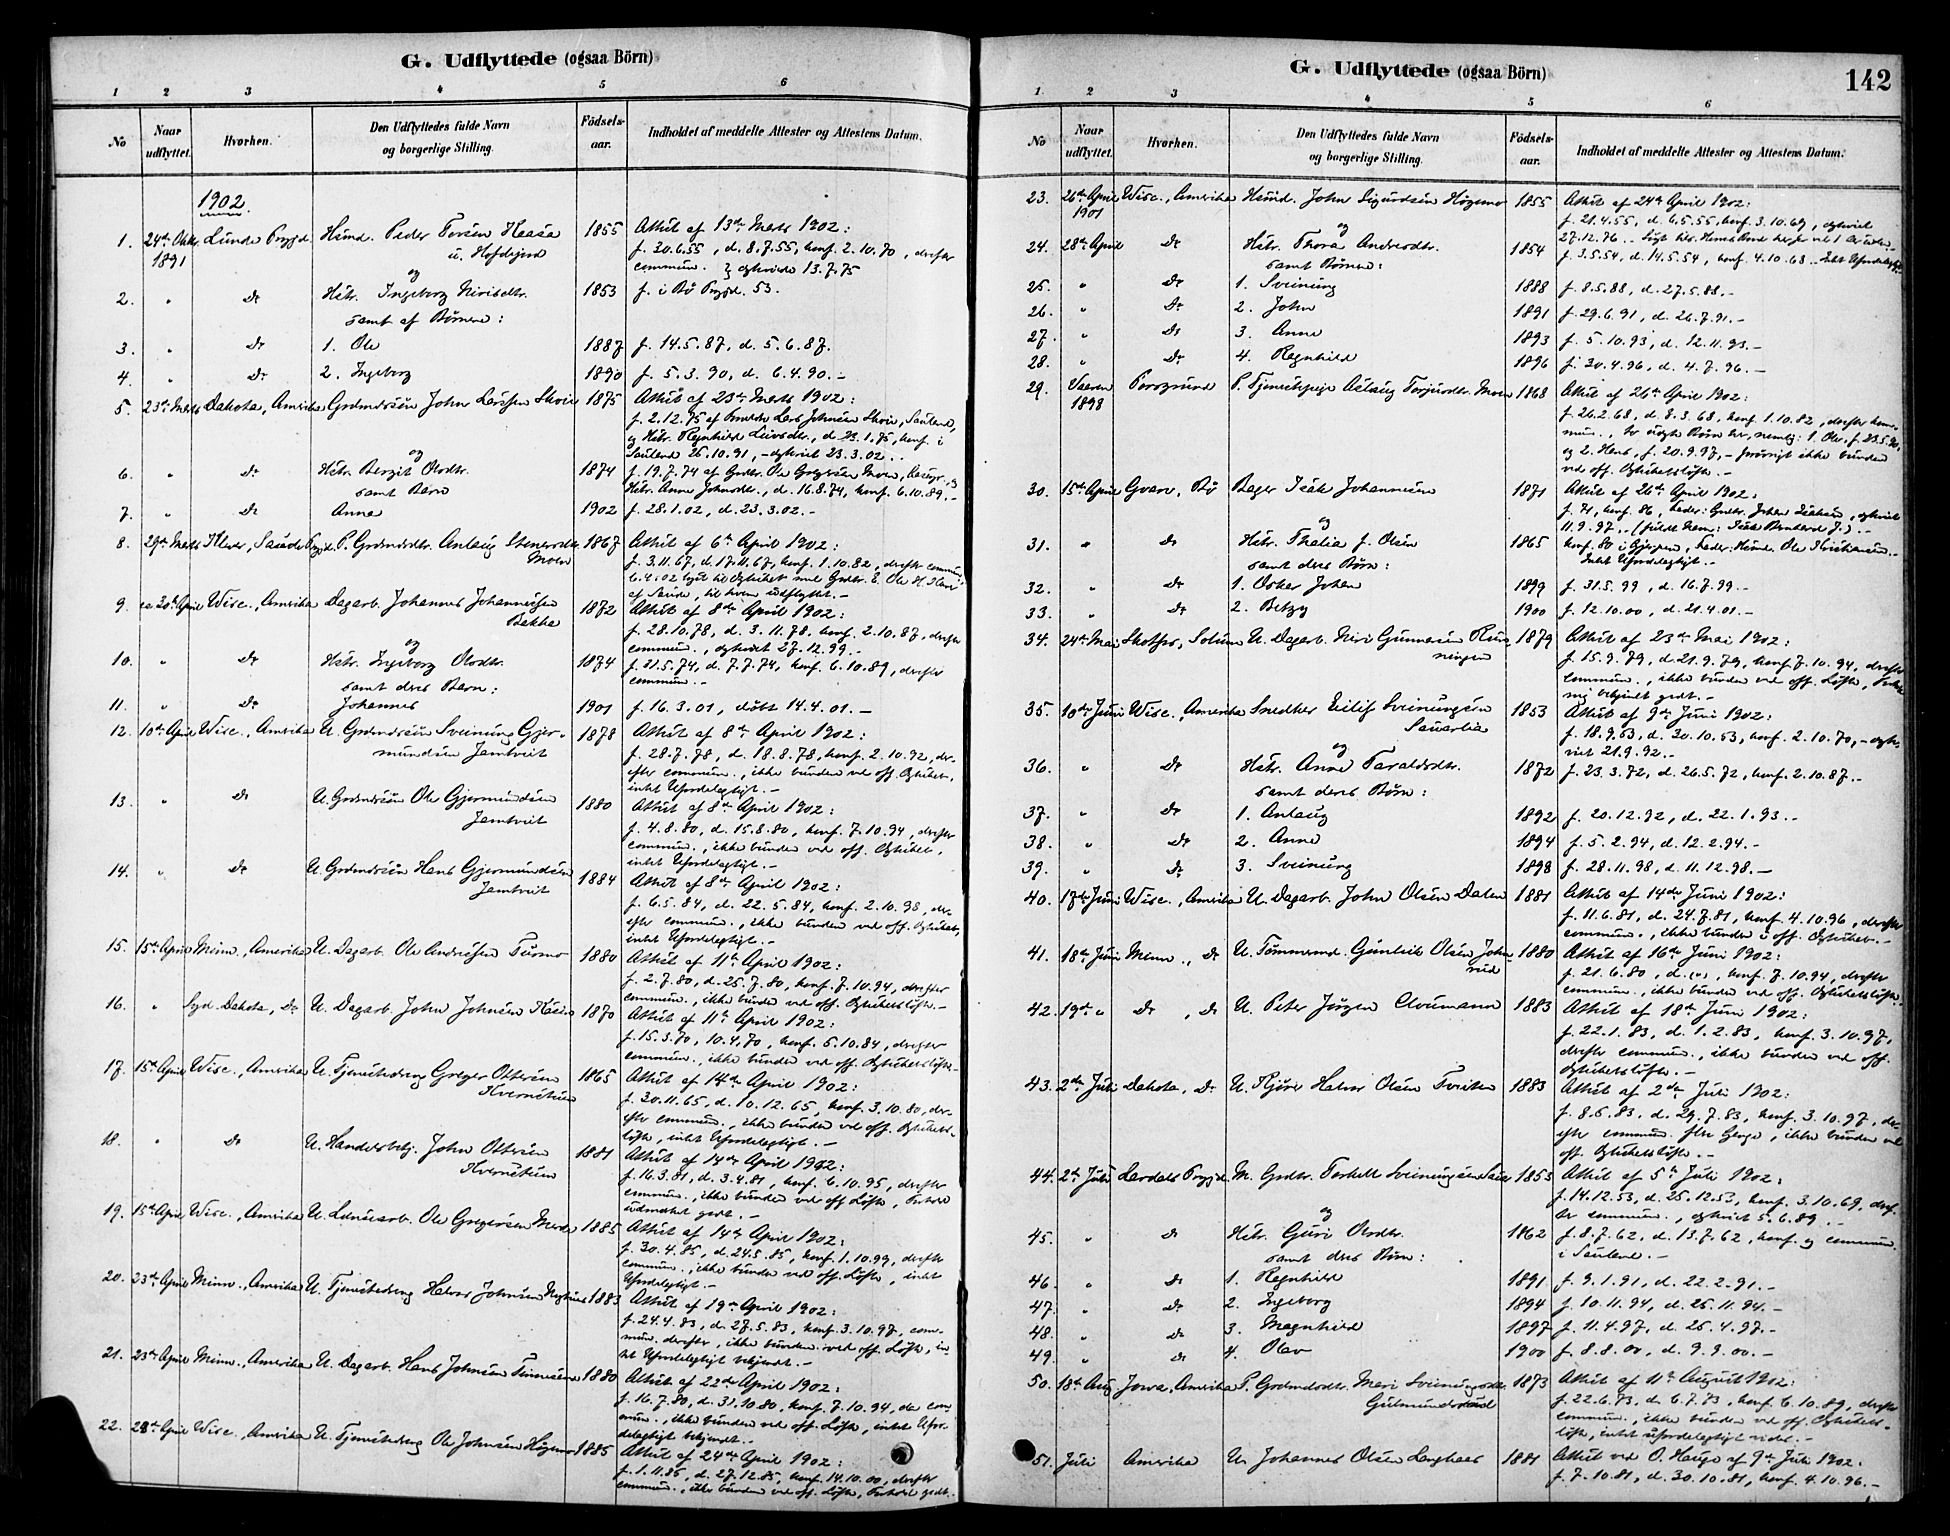 G. Udflyttede (ogsaa Börn)
1 2 3 4 5 6
No
Naar udflyttet.
Hvorhen.
Den Udflyttedes fulde Navn og borgerlige Stilling.
Födsels-aar.
Indholdet af meddelte Attester og Attestens Datum.
1902.
1. 24de Oktr. 1891 Lunde Prgjd. Husmd. Peder Torsen 1855 Attest af 13de Marts 1902:
f. 20.6.55, d. 8.7.55, konf. 2.10.70, derefter
commun. } dgkvierede 13.7.75
og
2. " Do Hstr. Ingeborg 1853 f. i Bø Prgjd. 53.
samt af Børnene:
3. " Do 1. Ole 1887 f. 14.5.87, d. 5.6.87.
4. " Do 2. Ingeborg 1890 f. 5.3.90, d. 6.4.90.-
5. 23de Marts Dakota, Amerika Grdmdssøn John Larssen Skoie 1875 Attest af 23de Marts 1902:
f. 2.12.75 af Lars Johnsen Skoie, Sauland,
og Hstr. Regnhild Leivsdtr., konf. i
Sauland 25.10.91, - dgkviet 23.3.02.
og
6. " Do Hstr. Bergit Olsdtr. 1874 f. 19.7.74 af Grdbr. Ole Gregersen Moen,
samt Barn Hstr. Anne Johnsdtr., d. 16.8.74, konf. 6.10.89.-
7. " Do Anne 1902 f. 28.1.02, d. 23.3.02.-
8. 29de Marts Saude Prgjd. P. Grdmdsdtr. Anlaug Steinersdtr. Moen 1867 Attest af 6te April 1902:
f. 3.11.67, d. 17.11.67, konf. 1.10.82, derefter commun.
9. ca 30te April Wisc., Amerika Dagarb. Johannes Johannessen Bekka 1872 Attest af 8de April 1902:
f. 28.10.78, d. 3.11.78, konf. 2.10.87, derefter
commun., dgkviet 27.12.99.-
og
10. " Do Hstr. Ingeborg Olsdtr. 1874 f. 21.5.74, d. 7.7.74, konf. 6.10.89, derefter
samt deres Barn: commun.-
11. " Do Johannes 1901 f. 16.3.01, døbt 14.4.01.-
12. 10de April Wisc., Amerika U. Grdmdssøn Sveinung Gjermundsen Jamtveit 1878 Attest af 8de April 1902:
f. 28.7.78, d. 18.8.78, konf. 2.10.92, der-
efter commun., ikke bunden ved off. Ægteskab,
intet Ufordelagtigt.-
13. " Do U. Grdmdssøn Ole Gjermundsen Jamtveit 1880 Attest af 8de April 1902:
f. 4.8.80, d. 15.8.80, konf. 7.10.94, derefter
commun., ikke bunden ved off. Ægteskab,
intet Ufordelagtigt.-
14. " Do U. Grdmdssøn Hans Gjermundsen Jamtveit 1884 Attest af 8de April 1902:
f. 6.5.84, d. 22.5.84, konf. 2.10.98, der-
efter commun., ikke bunden ved off. Ægteskab,
intet Ufordelagtigt.-
15. 15de April Minn., Amerika U. Dagarb. Ole Andersen 1880 Attest af 11te April 1902:
f. 2.7.80, d. 25.7.80, konf. 7.10.94, derefter
commun., ikke bunden ved off. Ægteskabsløfte.-
16. " Syd Dakota, Do U. Dagarb. John Johnsen 1870 Attest af 11te April 1902:
f. 15.3.70, 10.4.70, konf. 5.10.84, derefter
commun., ikke bunden ved off. Ægteskabsløfte.-
17. 15de April Wisc., Amerika U. Tjenestedreng Greger Ottersen 1865 Attest af 14de April 1902:
f. 30.11.65, d. 10.12.65, konf. 3.10.80, der-
efter commun., ikke bunden ved off. Ægteskabs-
løfte, intet Ufordelagtigt.-
18. " Do U. Handelsbetj. John Ottersen 1881 Attest af 14de April 1902:
f. 16.3.81, d. 3.4.81, konf. 6.10.95, derefter
commun., ikke bunden ved off. Løfte, Forhold
udmærket godt.-
19. 15de April Wisc., Amerika U. Ole Gregersen 1885 Attest af 14de April 1902:
f. 30.4.85, d. 24.5.85, konf. 1.10.99, derefter
commun., ikke bunden ved off. Løfte, intet
Ufordelagtigt.-
20. 23de April Minn., Amerika U. Tjenestedreng Halvor Johnsen 1883 Attest af 19de April 1902:
f. 24.4.83, d. 27.5.83, konf. 3.10.97, com-
mun. derefter, ikke bunden ved off. Løfte, in-
tet Ufordelagtigt bekjendt.-
21. 23de April Minn., Amerika U. Dagarb. Hans Johnsen 1880 Attest af 22de April 1902:
f. 16.7.80, d. 31.10.80, konf. 7.10.94, der com-
mun., ikke bunden ved off. Løfte, intet Ufor-
delagtigt bekjendt.-
22. 28de April Wisc., Amerika U. Tjenestedreng Ole Johnsen 1885 Attest af 24de April 1902:
f. 1.11.85, d. 27.12.85, konf. 14.10.00, derefter
commun., ikke bunden ved off. Løfte, Forhold godt.
G. Udflyttede (ogsaa Börn)
142
1. 2 3 4 5 6
No
Naar udflyttet.
Hvorhen.
Den Udflyttedes fulde Navn og borgerlige Stilling.
Födsels-aar.
Indholdet af meddelte Attester og Attestens Datum.
23. 26de April 1901 Wisc., Amerika Husmd. John Sigurdsen 1855 Attest af 24de April 1902:
f. 21.4.55, d. 6.5.55, konf. 3.10.69, dgkviet
27.12.76.
og
24. 28de April Do Hstr. Thora Andersdtr. 1854 f. 3.5.54, d. 14.5.54, konf. 4.10.68.
samt Børnene:
25. " Do 1. Sveinung 1888 f. 8.5.88, d. 27.5.88.-
26. " Do 2. John 1891 f. 29.6.91, d. 26.7.91.-
27. " Do 3. Anne 1893 f. 5.10.93, d. 12.11.93.-
28. " Do 4. Regnhild 1896 f. 30.4.96, d. 4.7.96.-
29. Vaaren 1898 Porsgrund P. Tjenestepige Aslaug Torjusdtr. Moen 1868 Attest af 26de April 1902:
f. 26.2.68, d. 8.3.68, konf. 1.10.82, derefter com-
mun., to uægte Børn her, nemlig: 1. Ole, f. 23.5.90,
og 2. Hans, f. 20.9.97, - forøvrigt ikke bunden
ved off. Ægteskabsløfte.-
30. 15de April Gvarv, Bø Bager Isak Johannesen 1871 Attest af 26de April 1902:
f. 71, konf. 86, dgkviet
11.9.97.
og
31. " Do Hstr. Thalia f. Olsen 1865 konf. 80 i Gjerpen, Fader: Husmd. Ole Kristiansen.
samt deres Børn: Intet Ufordelagtigt.-
32. " Do 1. Oskar Johan 1899 f. 31.5.99, d. 16.7.99.-
33. " Do 2. Betzy 1900 f. 12.10.00, d. 21.4.01.-
34. 24de Mai Skotfos, Solum U. Dagarb. Gunnersen 1879 Attest af 23de Mai 1902:
f. 15.9.79, d. 21.9.79, konf. 7.10.94, derefter
commun., ikke bunden ved off. Løfte, Forhold
mig bekjendt godt.-
35. 10de Juni Wisc., Amerika Snedker Eilif Sveinungsen Sauarlia 1853 Attest af 9de Juni 1902:
f. 18.9.53, d. 30.10.53, konf. 2.10.70, - dgk-
viet 21.9.92.-
og
36. " Do Hstr. Anne Taraldsdtr. 1872 f. 23.3.72, d. 26.5.72, konf. 2.10.87.-
samt deres Børn:
37. " Do 1. Anlaug 1892 f. 20.12.92, d. 22.1.93.-
38. " Do 2. Anne 1894 f. 5.2.94, d. 12.2.94.-
39. " Do 3. Sveinung 1898 f. 28.11.98, d. 11.12.98.-
40. 17de Juni Wisc., Amerika U. Dagarb. John Olsen Dalen 1881 Attest af 14de Juni 1902:
f. 11.6.81, d. 24.7.81, konf. 4.10.96, derefter
commun., ikke bunden i off. Ægteskab.-
41. 18de Juni Minn., Do U. Tømmermd. Gunleik Olsen 1880 Attest af 16de Juni 1902:
f. 21.6.80, d. (?), konf. 7.10.94, derefter
commun., ikke bunden ved off. Ægteskabsløfte.
42. 19de " Do, Do U. Peter Jørgen Cloumann 1883 Attest af 18de Juni 1902:
f. 22.1.83, d. 1.2.83, konf. 3.10.97,
derefter commun., ikke bunden ved off.
Ægteskabsløfte.-
43. 2de Juli Dakota, Do U. Halvor Olsen Tveiten 1883 Attest af 2de Juli 1902:
f. 8.6.83, d. 29.7.83, konf. 3.10.97, der-
efter commun. flere Gange, ikke bunden ved
off. Ægteskabsløfte.-
44. 2de Juli Lardals Prgjd. M. Grdbr. Torkell Sveinungsen 1853 Attest af 5te Juli 1902:
f. 14.12.53, d. 25.12.53, konf. 3.10.69, deref-
ter commun., dgkviet 5.6.89.-
og
45. " Do Hstr. Guri Olsdtr. 1862 f. 8.7.62, d. 13.7.62, konf. og commun.
samt deres Børn: i Sauland.-
46. " Do 1. Regnhild 1891 f. 9.1.91, d. 22.2.91.-
47. " Do 2. Ingeborg 1894 f. 10.11.94, d. 25.11.94.-
48. " Do 3. Magnhild 1897 f. 11.4.97, d. 25.4.97.-
49. " Do 4. Olav 1900 f. 8.8.00, d. 9.9.00.-
50. 18de Aug Jowa, Amerika P. Grdmdsdtr. Mari Sveinungsdtr. 1873 Attest af 11te August 1902:
f. 22.6.73, d. 6.7.73, konf. 6.10.89, derefter
commun., ikke bunden ved off. Ægteskabs-
løfte, intet ufordelagtigt vides.-
51. Juli Amerika U. Johannes Olsen 1881 Attest ved O. Hauge af 9de Juli 1902:
f. 7.10.81, d. 30.10.81, konf. 4.10.96.-